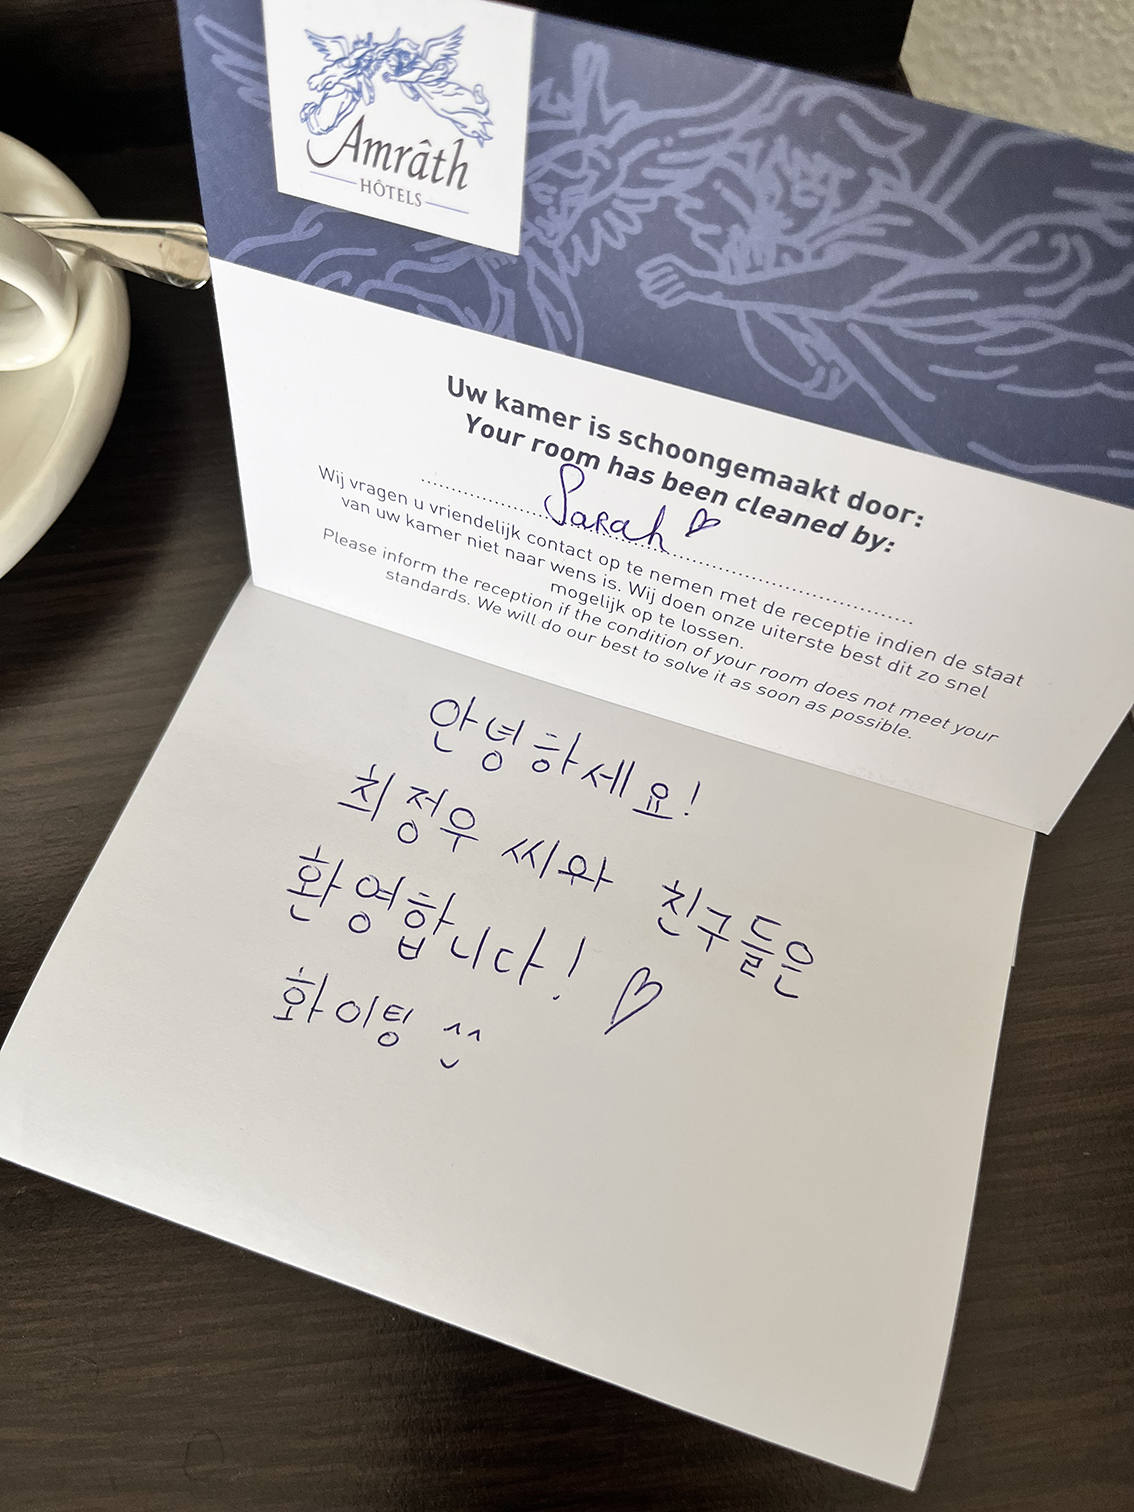 Amrâth
HÔTELS
Uw kamer is schoongemaakt door:
Your room has been cleaned by:
Sarah
Wij vragen u vriendelijk contact op te nemen met de receptie indien de staat
van uw kamer niet naar wens is. Wij doen onze uiterste best dit zo snel
mogelijk op te lossen.
Please inform the reception if the condition of your room does not meet your
standards. We will do our best to solve it as soon as possible.
안녕하세요!
최정우 씨와 친구들은
환영합니다!
화이팅